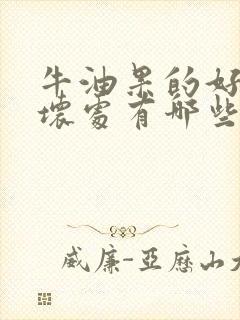 牛油果的好
壞處有哪些
威廉-亞歷山大